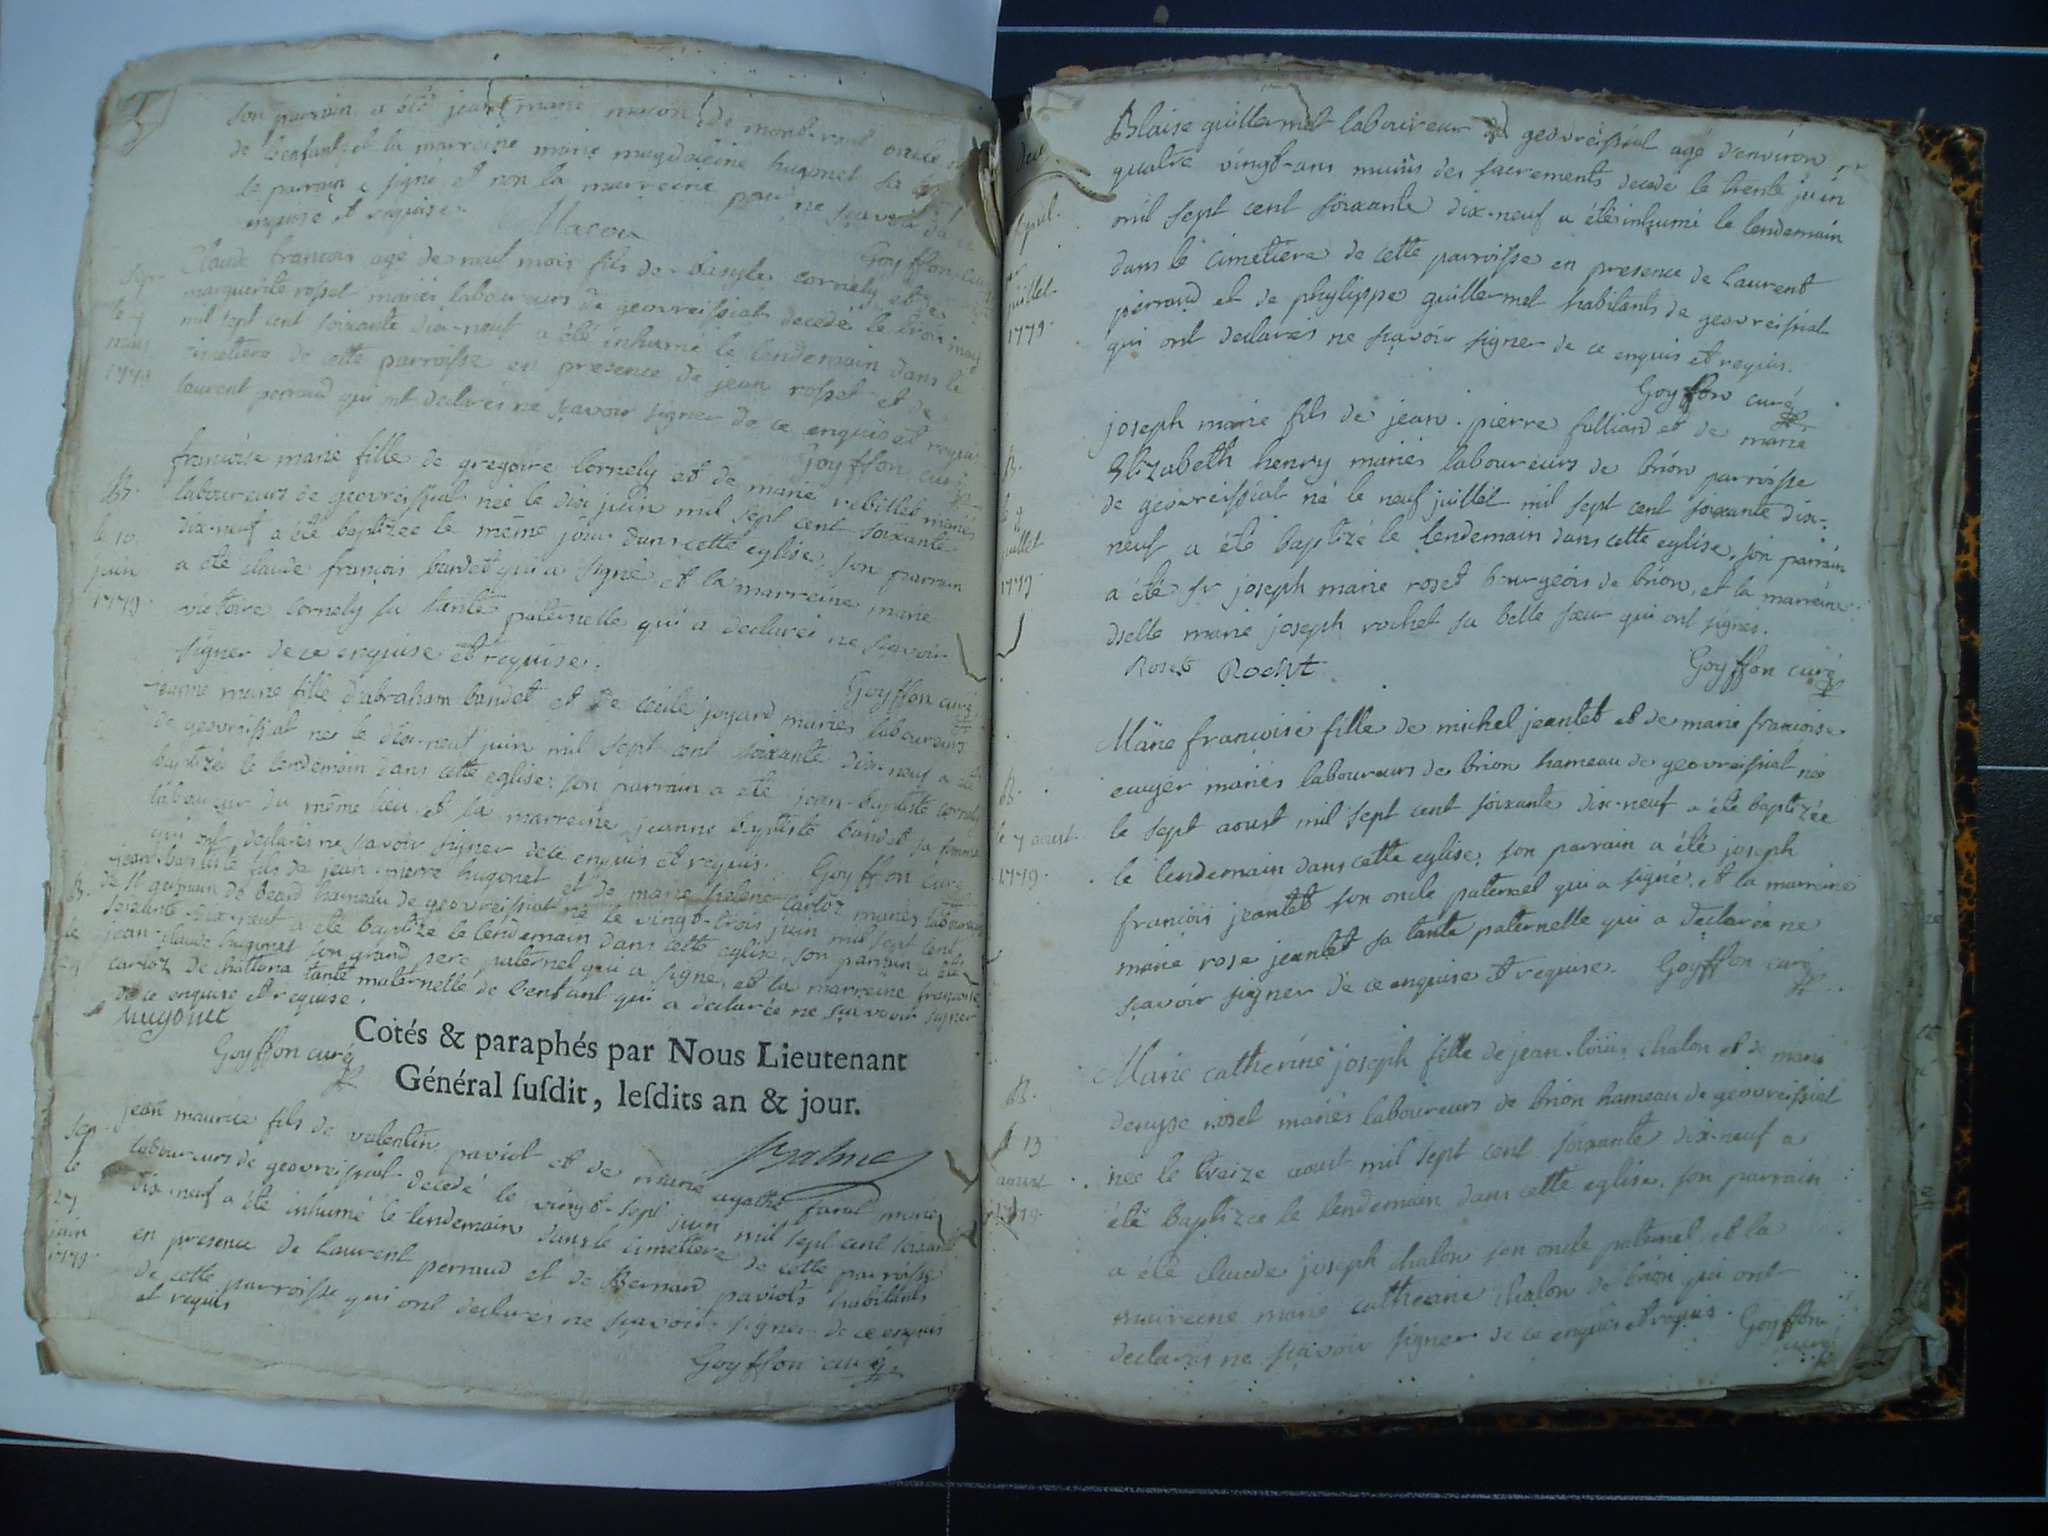 son parrain a été jean marie macon de montreal oncle
de l'enfant et la marreine marie magdeleine hugonet sa
le parrain a signé et non la marreine pour ne sçavoir de ce
enquise et requise.
Macon
Goyffon curé
Sep.
le 4
mais
1779
Claude francois agé de neuf mois fils de basyle cornely et de
marguerite rosset mariés laboureurs de geovreissiat decedé le trois may
mil sept cent soixante dix-neuf a été inhumé le lendemain dans le
cimetiere de cette parroisse en presence de jean rosset et de
laurent perraud qui ont declarés ne sçavoir signer de ce enquis et requis
Goyffon curé
B.
le 10
juin
1779.
francoise marie fille de gregoire Cornely et de marie rebillet mariés
laboureurs de geovreissiat née le dix juin mil sept cent soixante
dix-neuf a été baptizée le meme jour dans cette eglise, son parrain
a été claude françois bardet qui a signé et la marreine marie
victoire Cornely sa tante paternelle qui a declarée ne sçavoir
signer de ce enquise et requise.
Goyffon curé
jeanne marie fille d'abraham bandet et de cécile joyard mariés laboureurs
de geovreissiat née le dix-neuf juin mil sept cent soixante dix-neuf a été
baptizée le lendemain dans cette eglise: son parrain a été jean-baptiste cornely
laboureur du même lieu et sa marreine jeanne baptiste bandet sa femme
qui ont declarés ne sçavoir signer de ce enquis et requis.
Goyffon curé
B.
le
24
jean-baptiste fils de jean-pierre hugonet et de marie helene Carloz mariés laboureurs
de st germain de Beard hameau de geovreissiat né le vingt-trois juin mil sept cent
soixante dix-neuf a été baptizé le lendemain dans cette eglise, son parrain a été
jean-claude hugonet son grand pere paternel qui a signé, et la marreine françoise
carloz de chattona tante maternelle de l'enfant qui a declarée ne sçavoir signer
de ce enquise et requise.
hugonet
Goyffon curé
Cotés & paraphés par Nous Lieutenant
Général susdit, lesdits an & jour.
Sep.
le
27
juin
1779
jean maurice fils de valentin paviot et de marie agathe faral mariés
laboureurs de geovreissiat decedé le vingt-sept juin mil sept cent soixante
dix-neuf a été inhumé le lendemain dans le cimetiere de cette parroisse
en presence de Laurent perraud et de Bernard paviots habitants
de cette parroisse qui ont declarés ne sçavoir signer de ce enquis
et requis
Goyffon curé
juillet
1779.
Blaise guillermet laboureur de geovreissiat agé d'environ
quatre vingt-ans muüs des sacrements decedé le trente juin
mil sept cent soixante dix-neuf a été inhumé le lendemain
dans le cimetiere de cette parroisse en presence de Laurent
perraud et de phylippe guillermet habitants de geovreissiat
qui ont declarés ne sçavoir signer de ce enquis et requis.
Goyffon curé
B.
le 9
juillet
1779.
joseph marie fils de jean-pierre fulliard et de marie
Elizabeth henry mariés laboureurs de brion parroisse
de geovreissiat né le neuf juillet mil sept cent soixante dix-
neuf a été baptizé le lendemain dans cette eglise, son parrain
a été sr joseph marie roset bourgeois de brion, et la marreine
dselle marie joseph rochet sa belle sœur qui ont signés.
Roset Rochet
Goyffon curé
B.
le 7 aoust
1779.
Marie françoise fille de michel jeantet et de marie francoise
mariés laboureurs de brion hameau de geovreissiat née
le sept aoust mil sept cent soixante dix-neuf a été baptizée
le lendemain dans cette eglise; son parrain a été joseph
françois jeantet son oncle paternel qui a signé, et la marreine
marie rose jeantet sa tante paternelle qui a declarée ne
sçavoir signer de ce enquise et requise. Goyffon curé
B.
le 13
aoust
1779.
Marie catherine joseph fille de jean-loüis chalon et de marie
denyse roset mariés laboureurs de brion hameau de geovreissiat
née le treize aoust mil sept cent soixante dix-neuf a
été baptizée le lendemain dans cette eglise, son parrain
a été Claude joseph chalon son oncle paternel et la
marreine marie catherine chalon de brion qui ont
declarés ne sçavoir signer de ce enquis et requis. Goyffon
curé